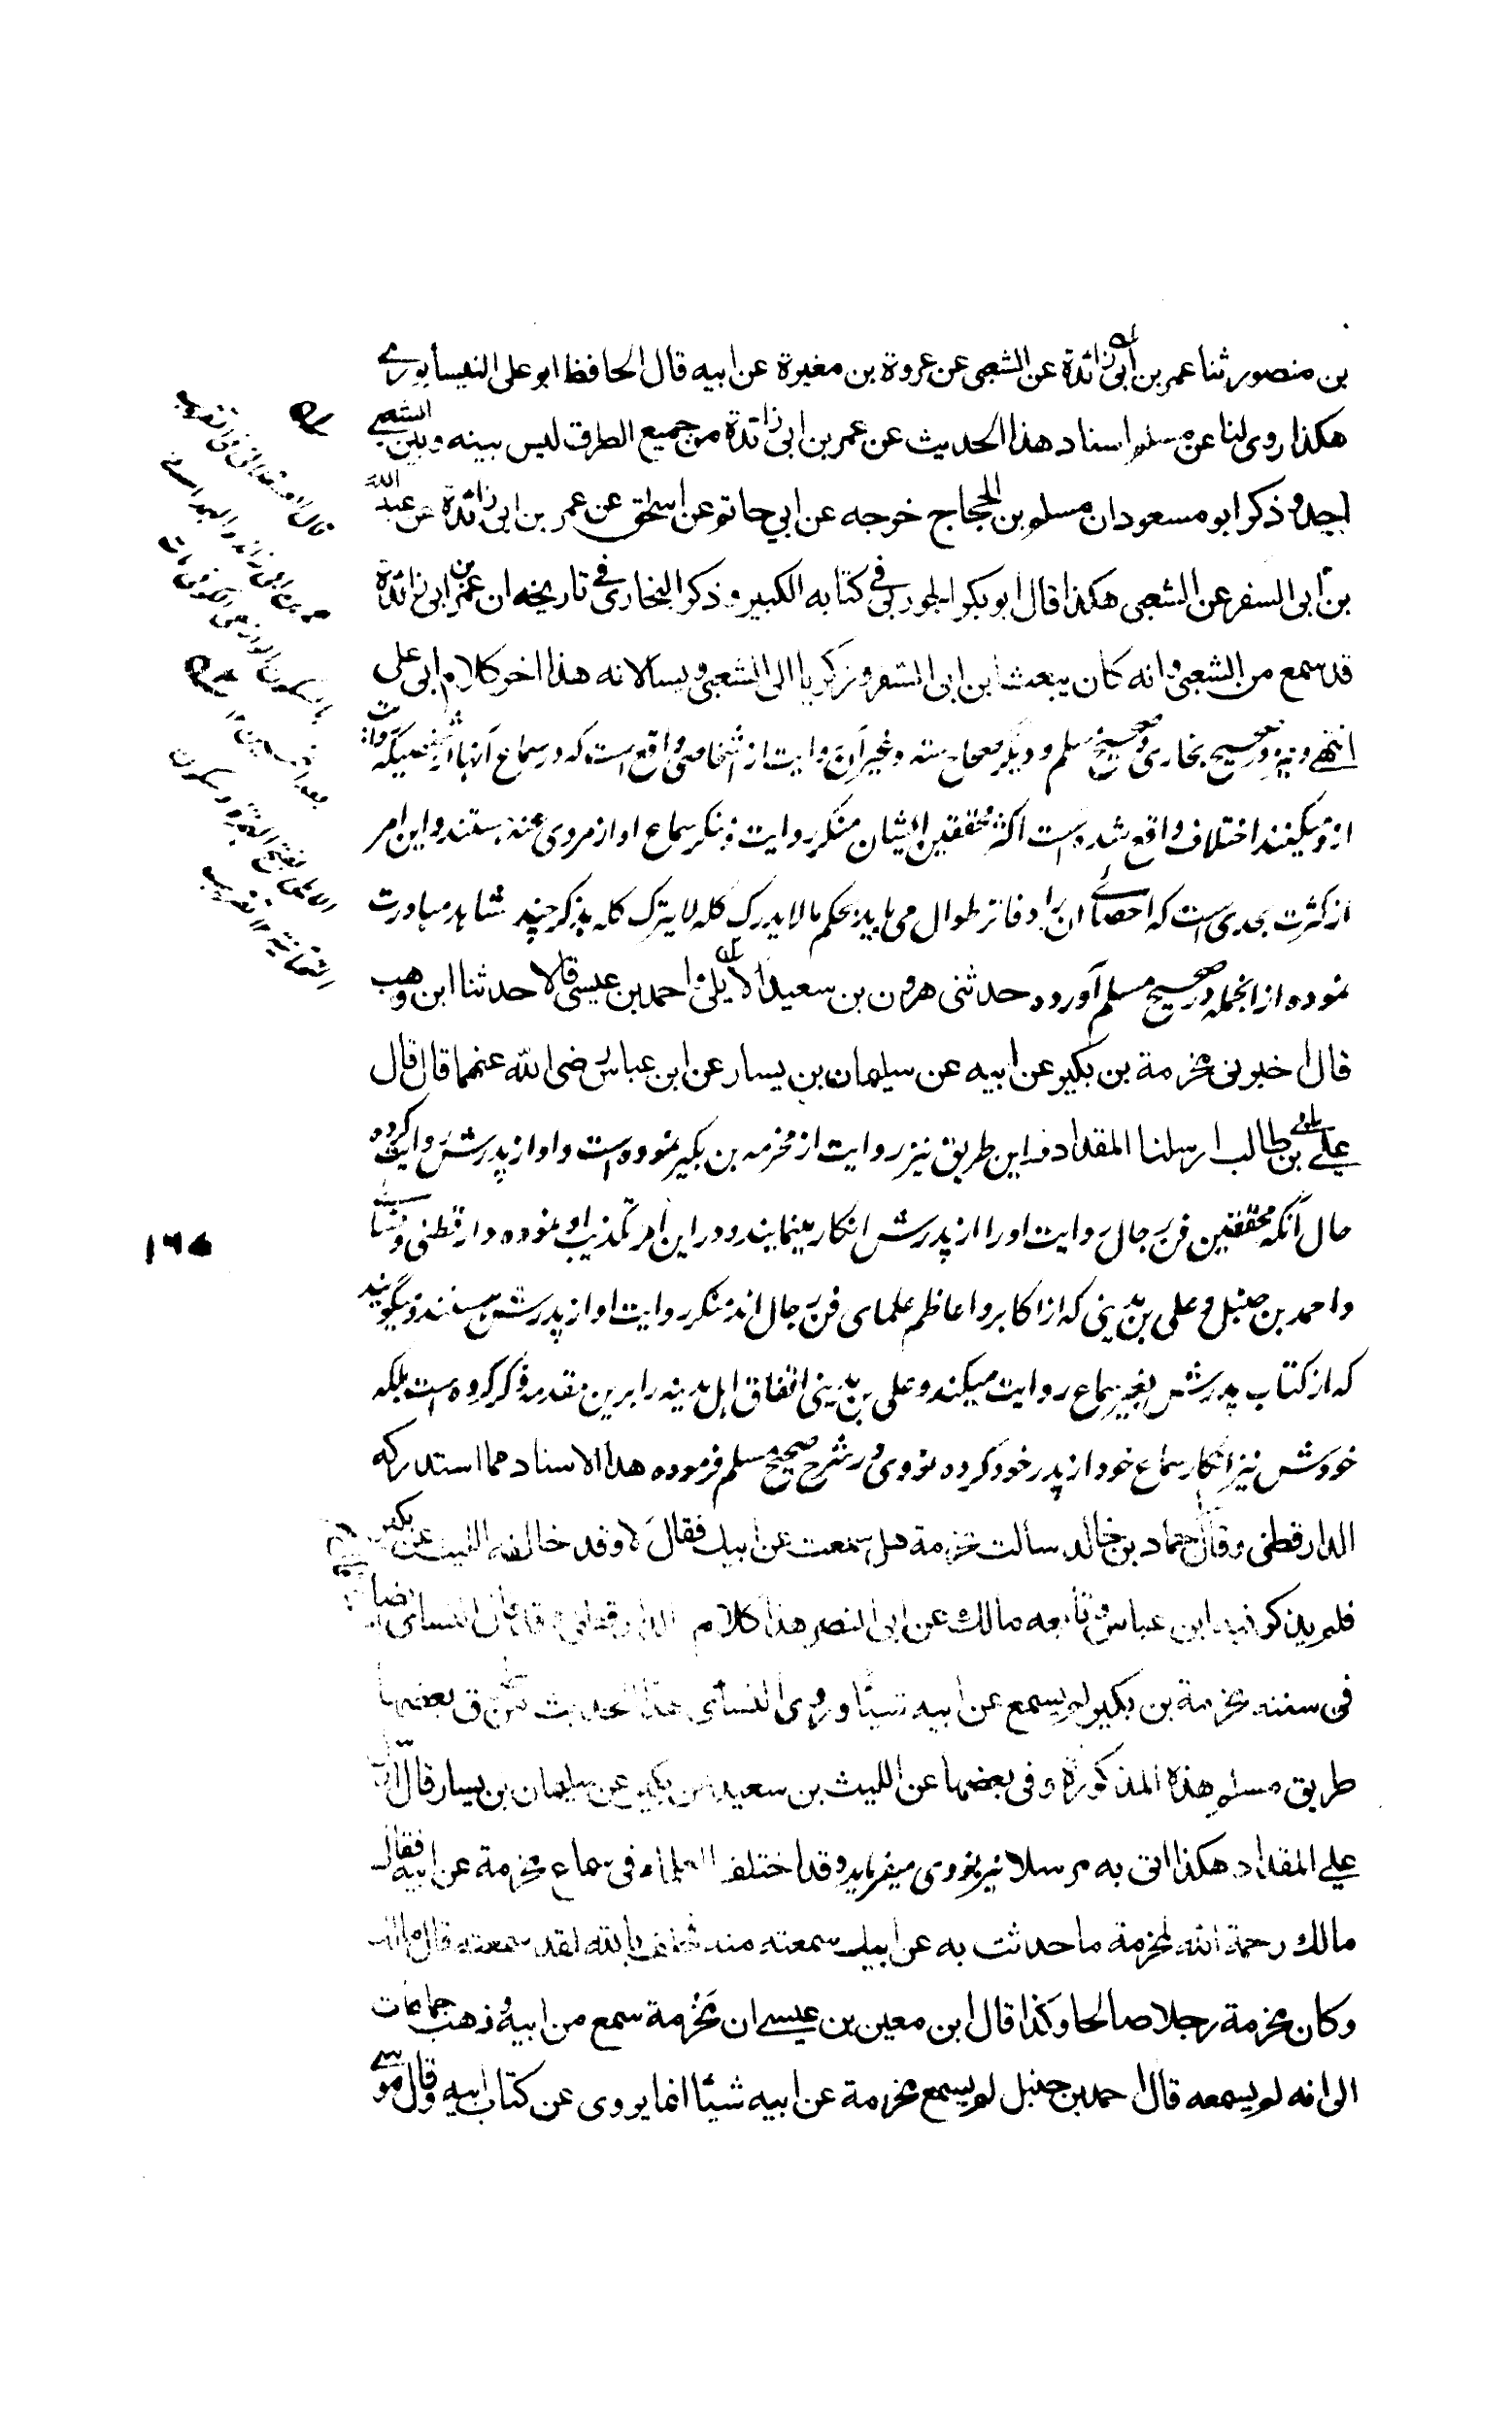 بن منصور ثنا عمر بن أبي زائدة عن الشعبي عن عروة بن مغيرة عن ابيه قال الحافظ ابو على النيسابوري
هكذا روى لنا عن مسلم اسناد هذا الحديث عن عمر بن ابى زائدة من جميع الطرق ليس بينه وبين الشعبي
احد و ذكر ابو مسعود ان مسلم بن الحجاج خرجه عن ابي حاتم عن اسحق عن عمر بن ابى زائدة عن عبد الله
بن أبى السفر عن الشعبى هكذا قال ابو بكر الجورقى في كتابه الكبير و ذكر البخارى فى تاريخه ان عمر بن ابى زائدة
قد سمع من الشعبى و انه كان يبعث ابن ابى السفر و زكريا الى الشعبى ويسألانه هذا اخر كلام ابى على
انتهى و نيز در صحيح بخارى و صحيح مسلم و ديگر صحاح سته و غير آن روايت از اشخاصى واقع است كه در سماع آنها از شخصيكه روايت
ازو ميكنند اختلاف واقع شده است اكثر محققين ايشان منكر روايت و منكر سماع او از مروى عنه هستند و اين امر
از كثرت بحدى است كه احصاى ان را دفاتر طوال مى بايد بحكم ما لا يدرك كله لا يترك كله بذكر چند شاهد مبادرت
نموده از انجمله در صحيح مسلم آورده حدثنى هرون بن سعيد الأيلى و احمد بن عيسى قالا حدثنا ابن وهب
قال اخبرنى مخرمة بن بكير عن ابيه عن سليمان بن يسار عن ابن عباس رضى الله عنهما قال قال
على بن ابى طالب ارسلنا المقداد در اين طريق نيز روايت از مخرمه بن بكير نموده است و او از پدرش روايت كرده
حال آنكه محققين فن رجال روايت او را از پدرش انكار مينمايند و در اين امر تكذيب او نموده دارقطنى و نسائى
و احمد بن حنبل و على بن مدينى كه از اكابر و اعاظم علماى فن رجال اند منكر روايت او از پدرش هستند و ميگويند
كه از كتاب پدرش بغير سماع روايت ميكند و على بن مدينى اتفاق اهل مدينه را برين مقدمه ذكر كرده است بلكه
خودش نيز انكار سماع خود از پدر خود كرده نووى در شرح صحيح مسلم فرموده هذا الاسناد مما استدركه
الدارقطنى وقال حماد بن خالد سألت مخرمة هل سمعت عن ابيك فقال لا وقد خالفه الليث عن بكير
فلم يذكر فيه ابن عباس و تابعه مالك عن ابى النصر هذا كلام الدارقطنى و قد قال النسائى ايضا
فى سننه مخرمة بن بكير لم يسمع عن ابيه شيئا و روى النسائى هذا الحديث من طرق بعضها
طريق مسلم هذه المذكورة و فى بعضها عن الليث بن سعيد عن بكير عن سليمان بن يسار قال ارسل
على المقداد هكذا اتى به مرسلا نيز نووى ميفرمايد و قد اختلف العلماء فى سماع مخرمة عن ابيه فقال
مالك رحمة الله لمخرمة ما حدثت به عن ابيك سمعته منه فحلف بالله لقد سمعته قال مالك
وكان مخرمة رجلا صالحا وكذا قال ابن معين بن عيسى ان مخرمة سمع من ابيه و ذهب جماعات
الى انه لم يسمعه قال احمد بن حنبل لم يسمع مخرمة عن ابيه شيئا انما يروى عن كتاب ابيه و قال موسى